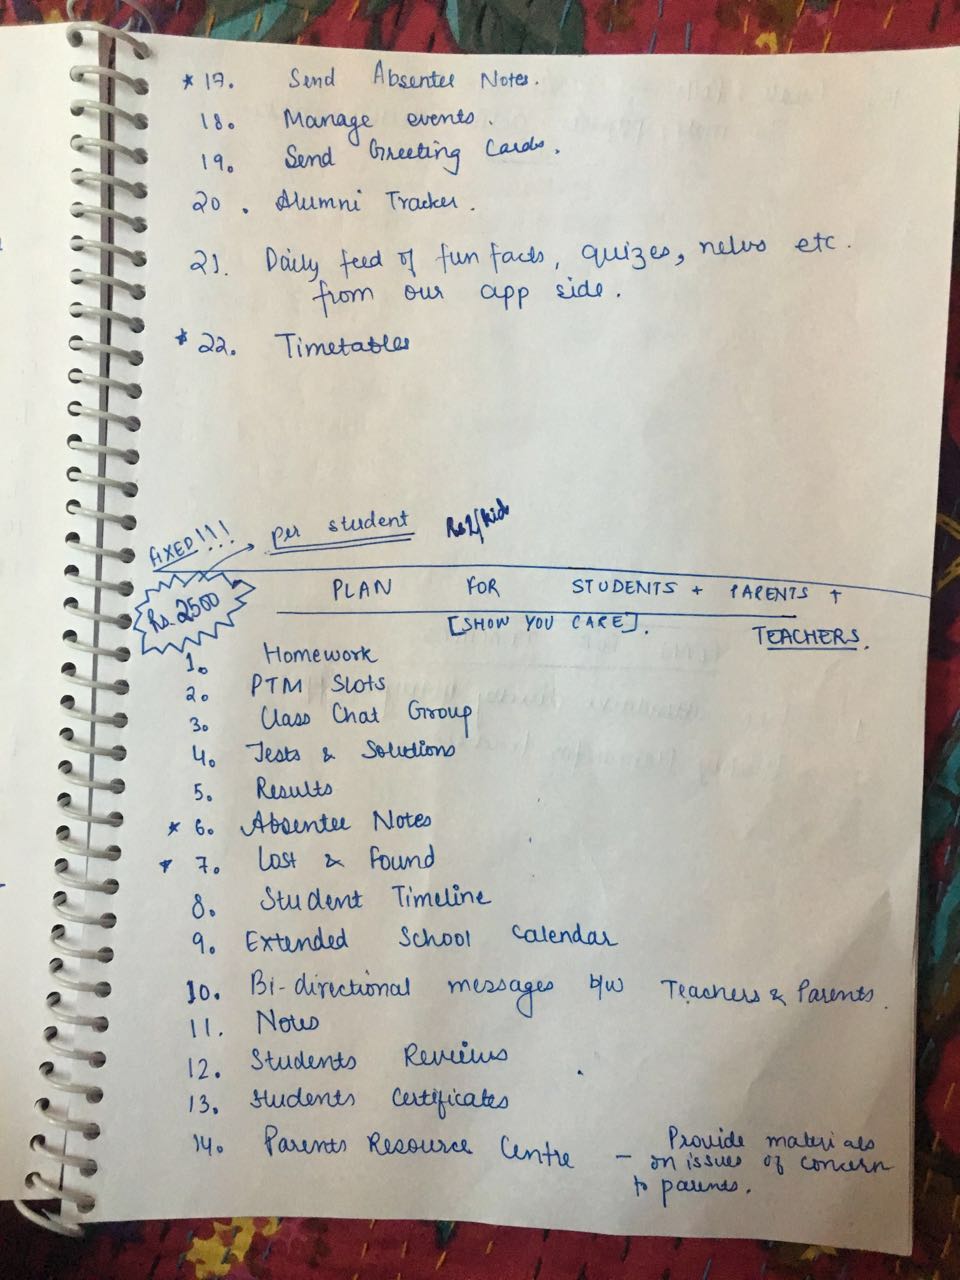 * 17. Send Absentee Notes.
18. Manage events.
19. Send Greeting Cards.
20. Alumni Tracker.
21. Daily feed of fun facts, quizes, news etc.
from our app side.
* 22. Timetables
FIXED!!! per student Rs2/kid
Rs. 2500
PLAN FOR STUDENTS + PARENTS +
TEACHERS.
[SHOW YOU CARE].
1. Homework
2. PTM Slots
3. Class Chat Group
4. Tests & Solutions
5. Results
* 6. Absentee Notes
* 7. Lost & Found
8. Student Timeline
9. Extended School Calendar
10. Bi-directional messages b/w Teachers & Parents.
11. Notes
12. Students Reviews
13. Students Certificates
14. Parents Resource Centre – Provide materials
on issues of concern
to parents.